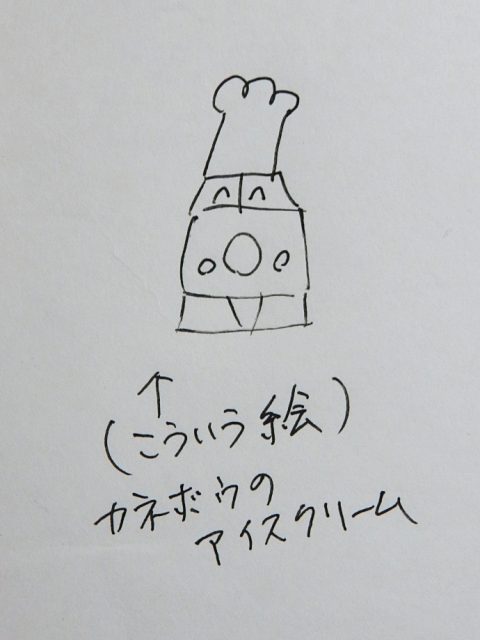 ↑
(こういう絵)
カネボウの
アイスクリーム